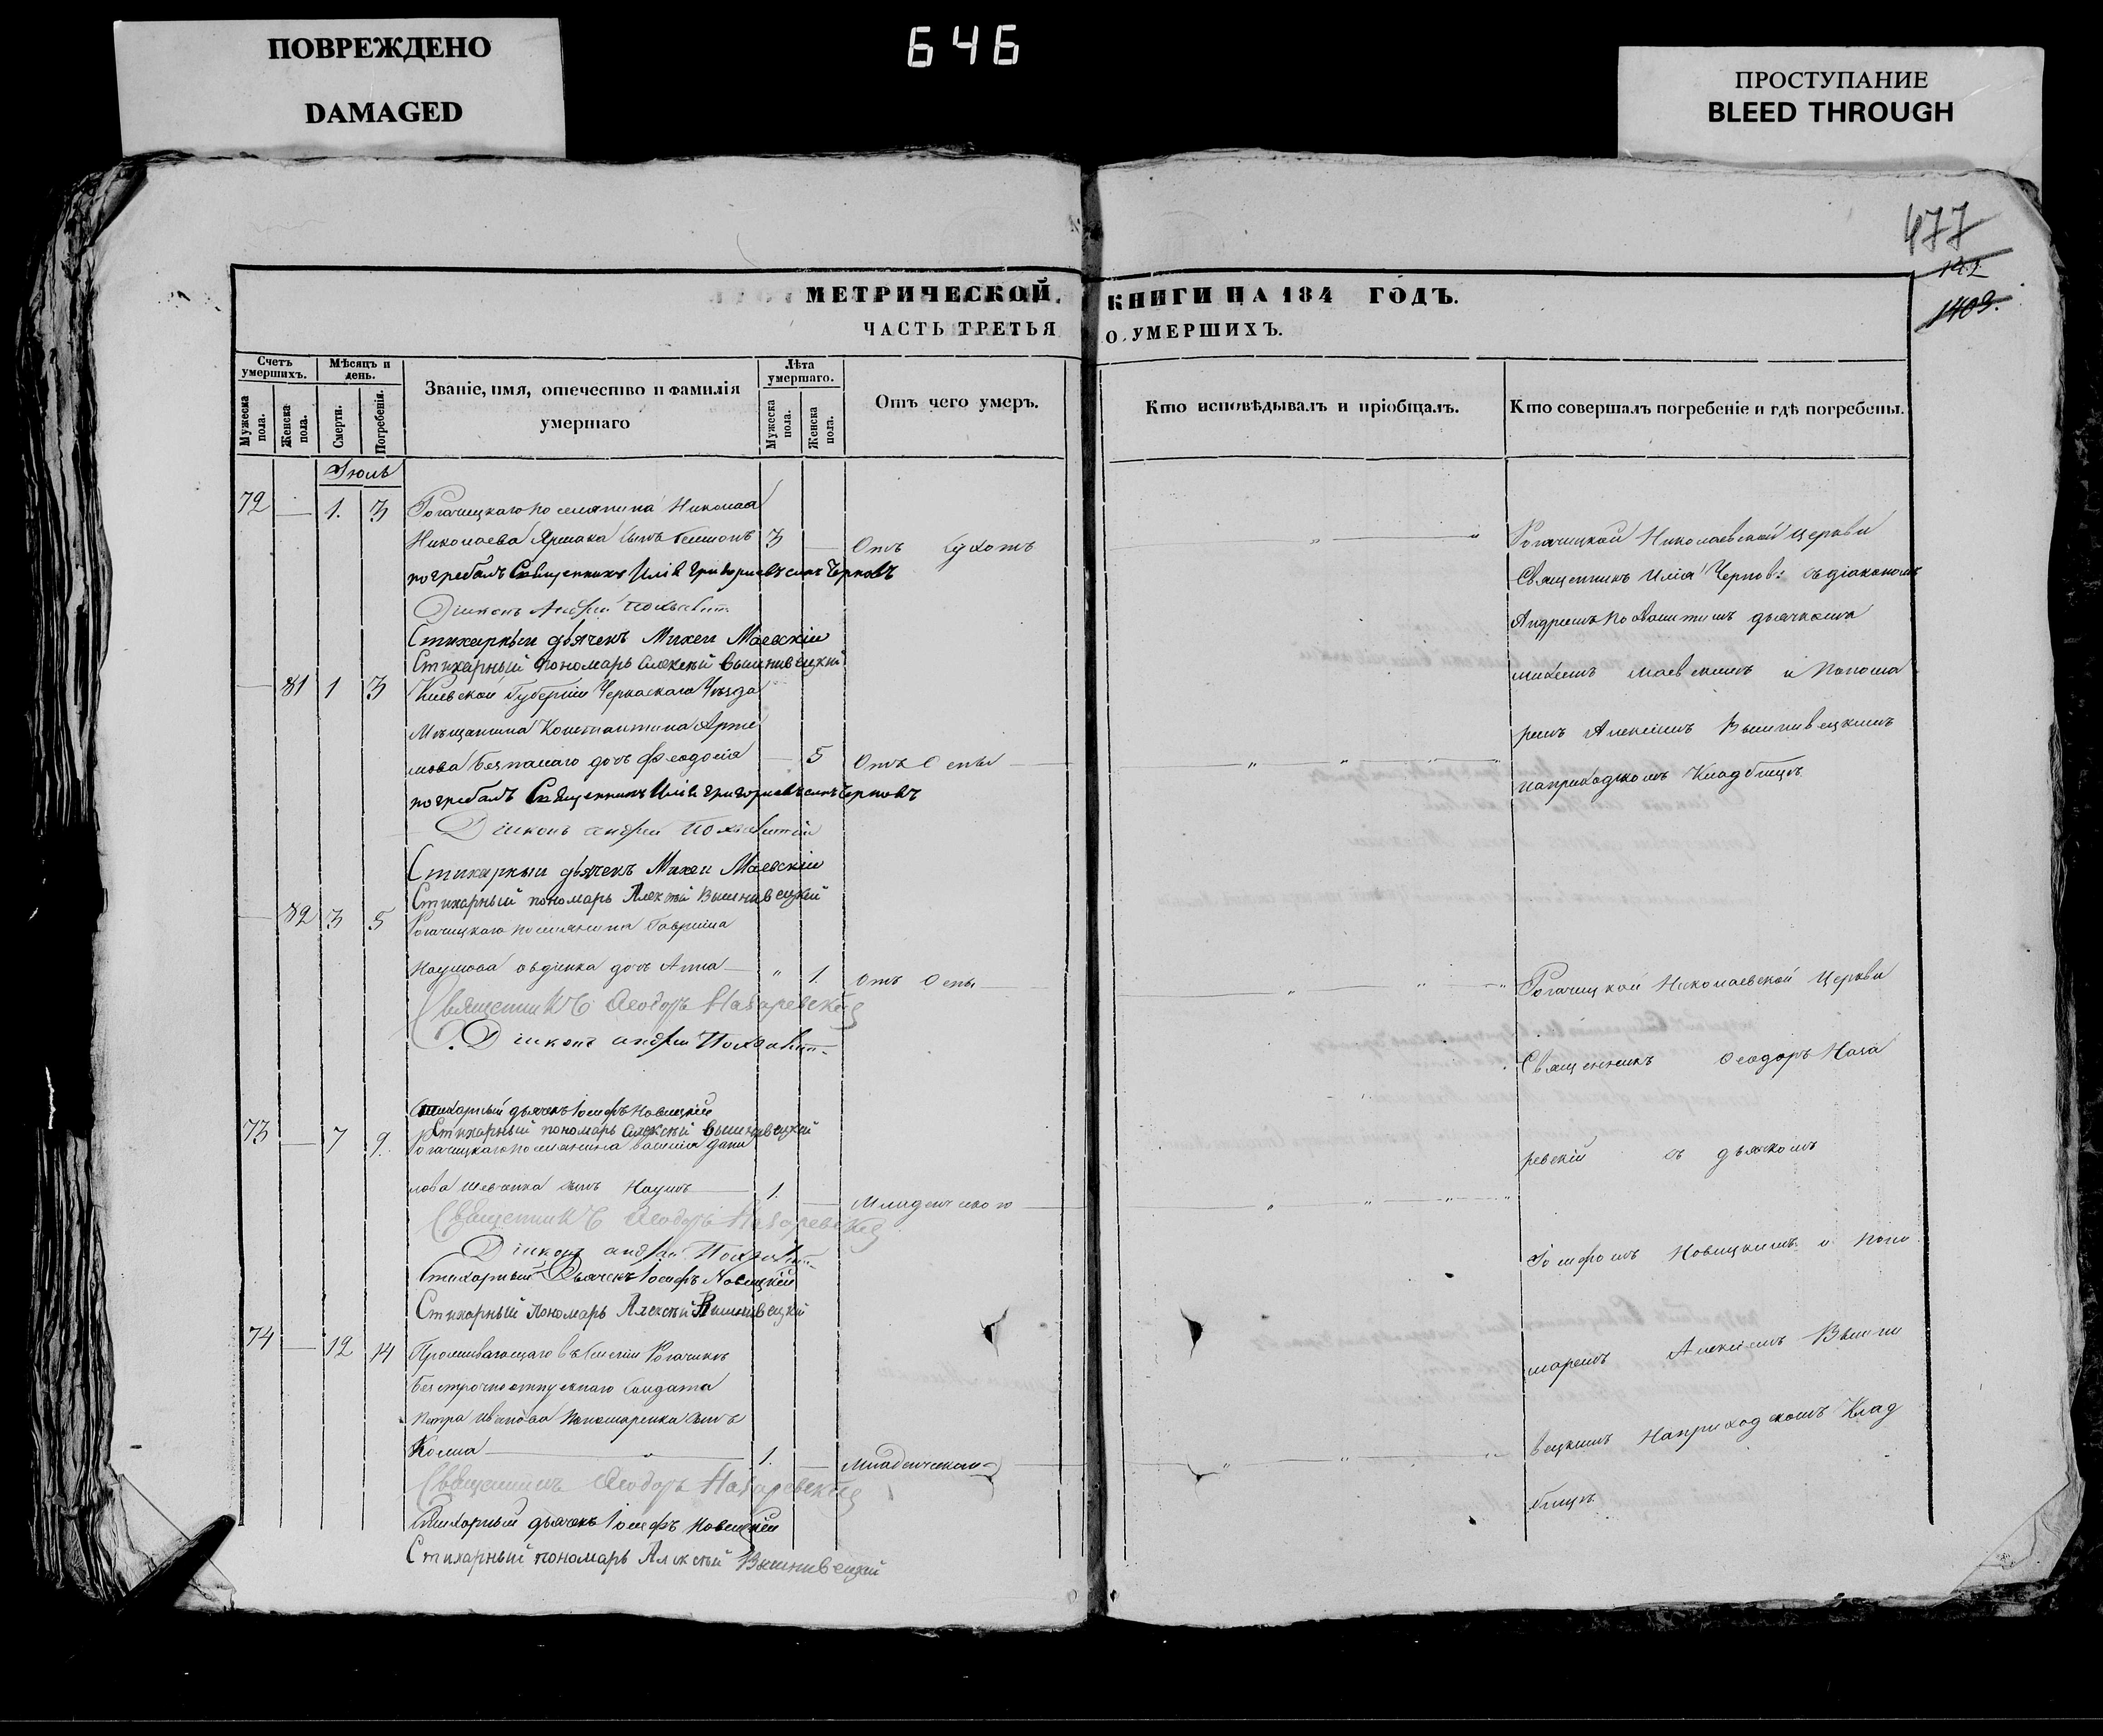 ПОВРЕЖДЕНО
DAMAGED
646
ПРОСТУПАНИЕ
BLEED THROUGH
477
142
1409.
МЕТРИЧЕСКОЙ КНИГИ НА 184 ГОДЪ.
ЧАСТЬ ТРЕТЬЯ О УМЕРШИХЪ.
Счетъ умершихъ.
Мѣсяцъ и день.
Званіе, имя, отечество и фамилія умершаго
Лѣта умершаго.
Отъ чего умеръ.
Кто исповѣдывалъ и пріобщалъ.
Кто совершалъ погребеніе и гдѣ погребены.
Мужеска пола.
Женска пола.
Смерти.
Погребенія.
Мужеска пола.
Женска пола.
Іюль
72 — 1. 3 Рогачицкаго поселянина Николая
Николаева Ярмака сынъ 3 — Отъ сухотъ
погребалъ Священникъ Илія Григорьевъ сынъ Черновъ
Діаконъ Андрей
Стихарный дьячекъ Михей Маевскій
Стихарный пономарь Алексѣй Вышнивецкій
— 81 1 3 Кіевской Губерніи Черкаскаго Уѣзда
Мѣщанина Константина Арте
мова дочь Феодосія — 5 Отъ Оспы
погребалъ Священникъ Илія Григорьевъ сынъ Черновъ
Діаконъ Андрей
Стихарный дьячекъ Михей Маевскій
Стихарный пономарь Алексѣй Вышнивецкій
— 82 3 5 Рогачицкаго поселянина Гавріила
Наумова Авдіенка дочь Анна — " 1. Отъ Оспы
Священникъ Ѳеодоръ Назаревскій
Діаконъ Андрей
Стихарный дьячекъ Іосифъ Новицкій
Стихарный пономарь Алексѣй Вышнивецкій
73 — 7 9. Рогачицкаго поселянина Василія Дани
лова Шевченка сынъ Наумъ — 1. — Младенческою
Священникъ Ѳеодоръ Назаревскій
Діаконъ Андрей
Стихарный Дьячекъ Іосифъ Новицкій
Стихарный пономарь Алексѣй Вышнивецкій
74 — 12 14 Проживающаго в селеніи Рогачикъ
безсрочноотпускнаго Солдата
Петра Иванова Пономаренка сынъ
Козма — 1. — Младенческою
Священникъ Ѳеодоръ Назаревскій
Стихарный дьячекъ Іосифъ Новицкій
Стихарный пономарь Алексѣй Вышнивецкій
Рогачицкой Николаевской Церкви
Священникъ Илія Черновъ съ діакономъ
Андреемъ дьячкомъ
Михеемъ Маевскимъ и Понома
ремъ Алексіемъ Вышнивецкимъ
на приходскомъ Кладбищѣ
Рогачицкой Николаевской Церкви
Священникъ Ѳеодоръ Наза
ревскій съ дьячкомъ
Іосифомъ Новицкимъ и поно
маремъ Алексіемъ Вышни
вецкимъ На приходскомъ Клад
бищѣ